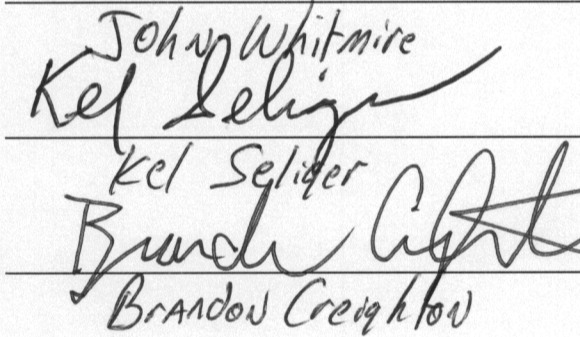 John Whitmire
Kel Seliger
Kel Seliger
Brandon Creighton
Brandon Creighton